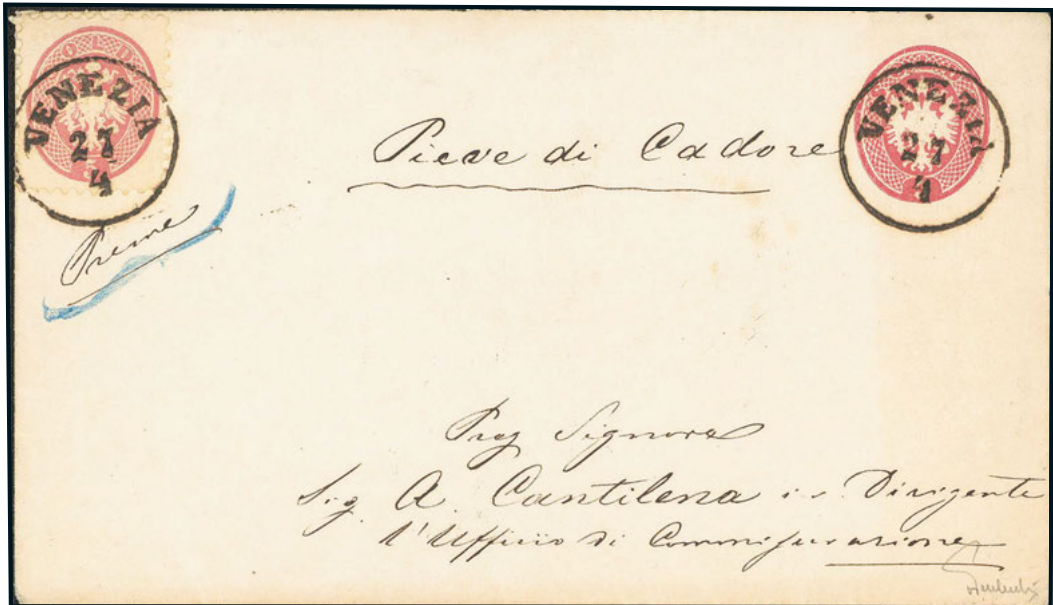 SOLDI
VENEZIA
27
4
VENEZIA
27
4
Pieve di Cadore
Preme
Preg Signore
Sig. A. Cantilena i.r. Dirigente
l'Ufficio di Commisurazione